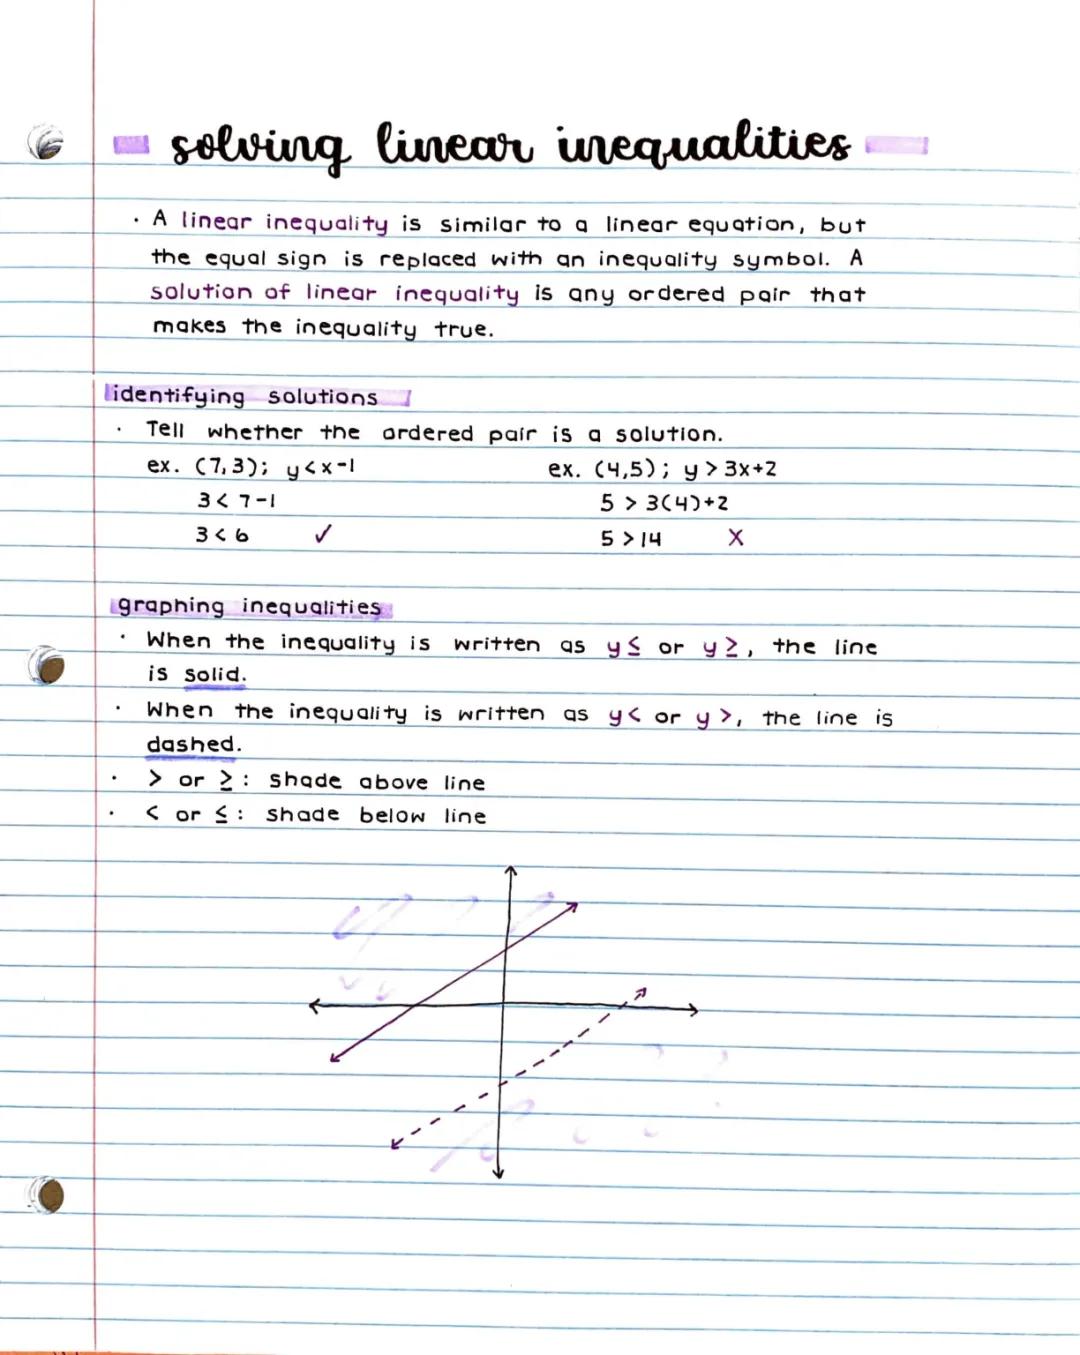 solving linear inequalities
· A linear inequality is similar to a linear equation, but
the equal sign is replaced with an inequality symbol. A
solution of linear inequality is any ordered pair that
makes the inequality true.
identifying solutions
· Tell whether the ordered pair is a solution.
ex. (7,3); y<x-1
3< 7-1
3<6 ✓
ex. (4,5); y>3x+2
5 > 3(4)+2
5 >14 X
graphing inequalities
· When the inequality is written as y≤ or y≥, the line
is solid.
· When the inequality is written as y< or y>, the line is
dashed.
· > or ≥: shade above line
· < or ≤: shade below line